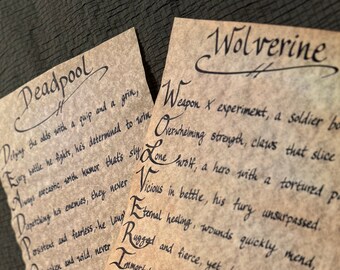 Deadpool
Defying the odds with a quip and a grin,
Every battle he fights, he's determined to win
Always sarcastic with humor that's sly
Dispatching his enemies, they never
Persistent and fearless, he laugh
and wild, never
Wolverine
Weapon X experiment, a soldier bo
Overwhelming strength, claws that slice
Lone wolf, a hero with a tortured p
Vicious in battle, his fury, unsurpassed.
Eternal healing, wounds quickly mend,
Rugged and fierce, yet